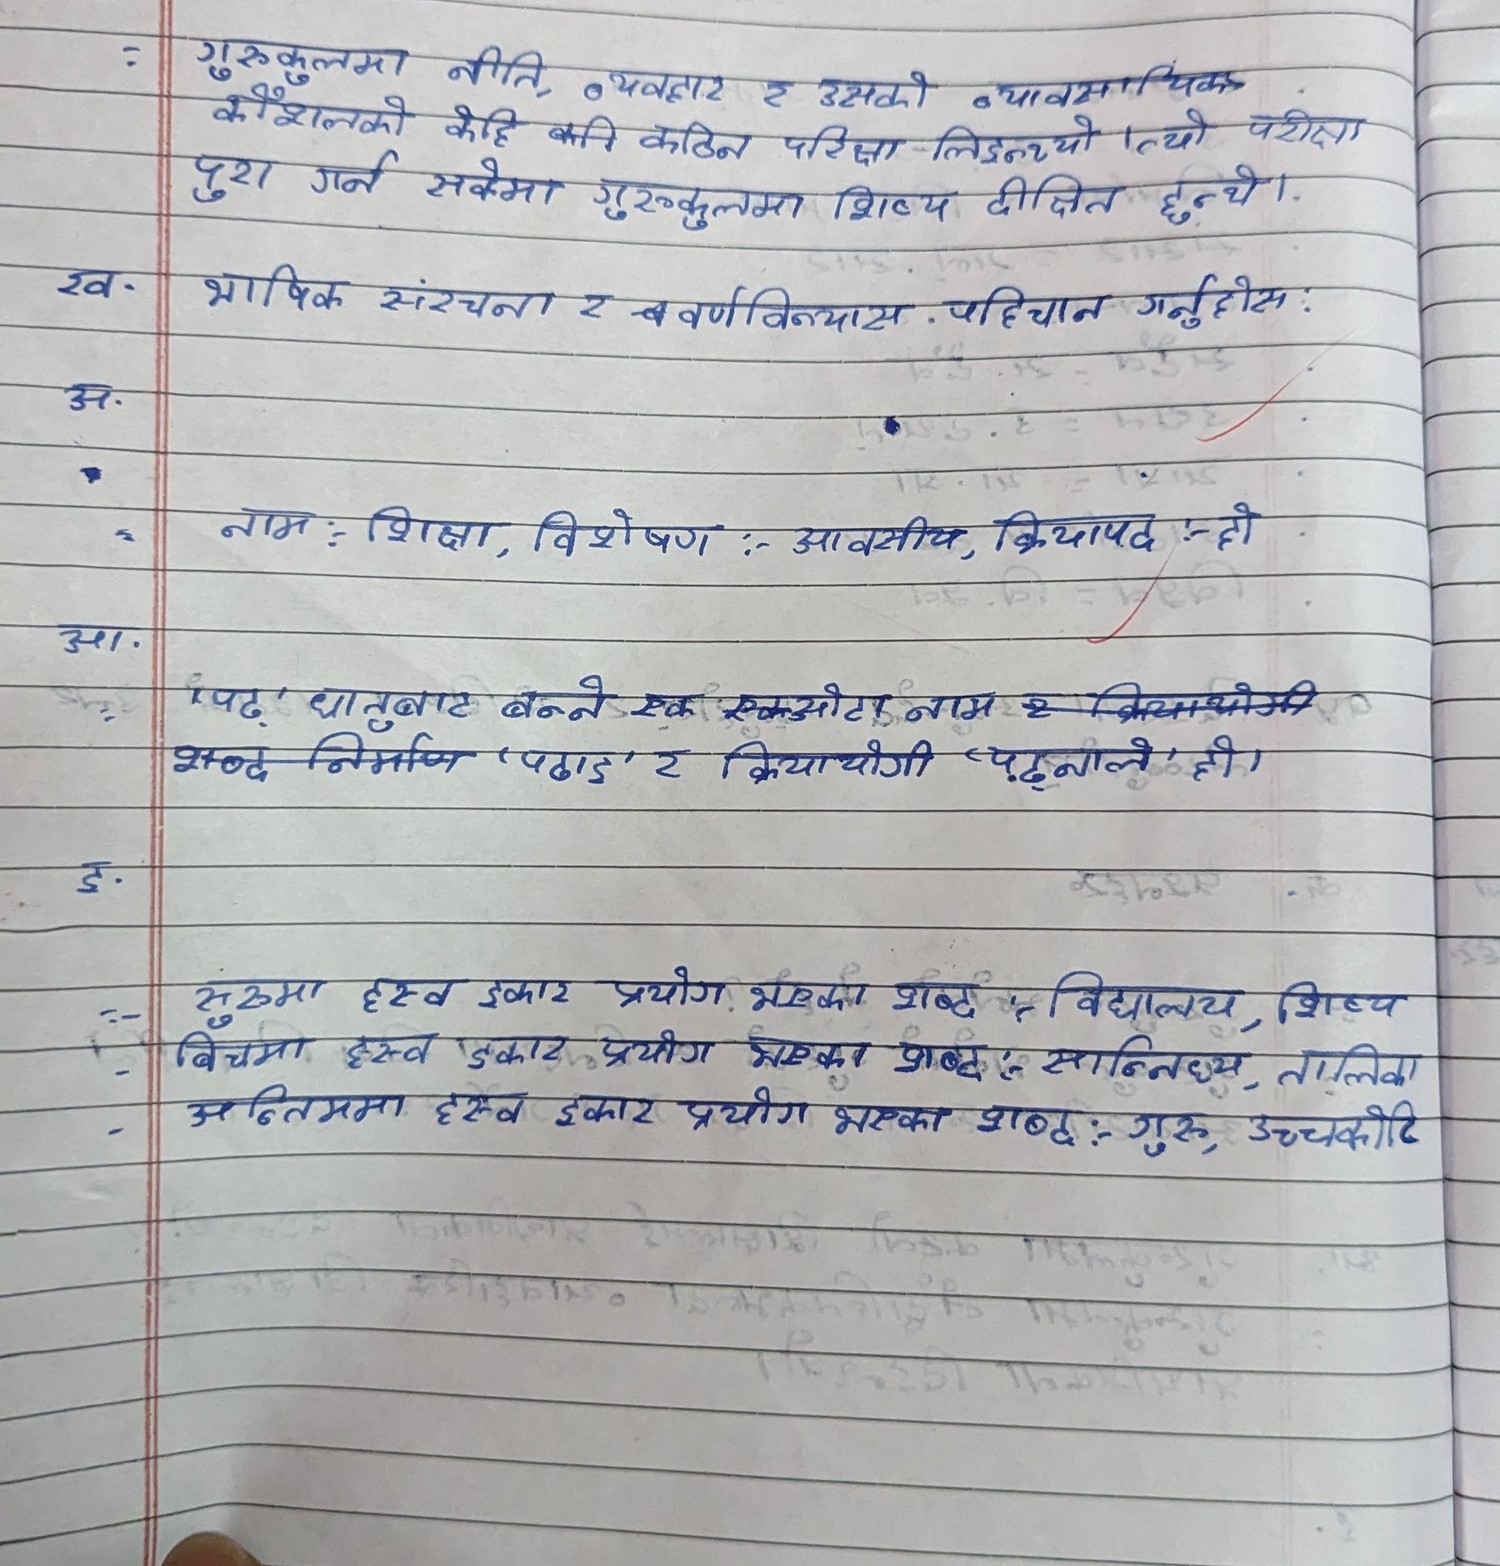 : गुरुकुलमा नीति, व्यवहार र उसको व्यावसायिक
कौशलको केहि कठिन परिक्षा लिइन्थ्यो । त्यो परीक्षा
पुरा गर्न सकेमा गुरुकुलमा शिष्य दीक्षित हुन्थे।
ख. भाषिक संरचना र वर्णविन्यास पहिचान गर्नुहोस :
अ.
= नाम :- शिक्षा, विशेषण :- आवसीय, क्रियापद :- हो
आ.
:- 'पढ्' धातुबाट बन्ने एक एकओटा नाम र क्रियायोगी
शब्द निर्माण 'पढाइ' र क्रियायोगी 'पढ्नाले' हो।
इ.
:- सुरुमा ह्रस्व इकार प्रयोग भएका शब्द :- विद्यालय, शिष्य
- बिचमा ह्रस्व इकार प्रयोग भएका शब्द :- सान्निध्य, तालिका
- अन्तिममा ह्रस्व इकार प्रयोग भएका शब्द :- गुरु, उच्चकोटि